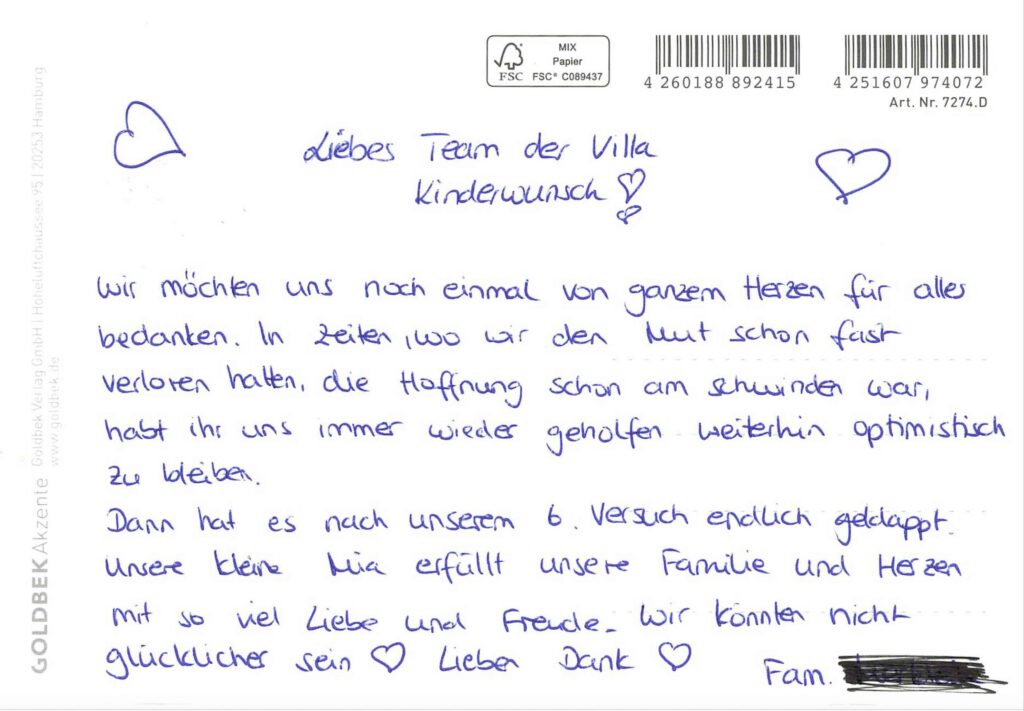 MIX
Papier
FSC FSC® C089437
4 260188 892415
4 251607 974072
Art. Nr. 7274.D
GOLDBEK Akzente Goldbek Verlag GmbH | Hoheluftchaussee 95 | 20253 Hamburg
www.goldbek.de
Liebes Team der Villa
Kinderwunsch
Wir möchten uns noch einmal von ganzem Herzen für alles
bedanken. In Zeiten, wo wir den Mut schon fast
verloren hatten, die Hoffnung schon am schwinden war,
habt ihr uns immer wieder geholfen weiterhin optimistisch
zu bleiben.
Dann hat es nach unserem 6. Versuch endlich geklappt.
Unsere kleine Mia erfüllt unsere Familie und Herzen
mit so viel Liebe und Freude. Wir könnten nicht
glücklicher sein ♡ Lieben Dank ♡
Fam.